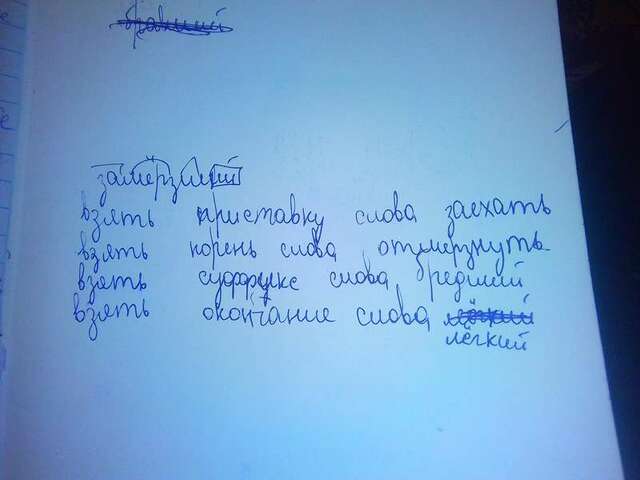 замёрзший
взять приставку слова заехать
взять корень слова отмерзнуть
взять суффикс слова редший
взять окончание слова
лёгкий